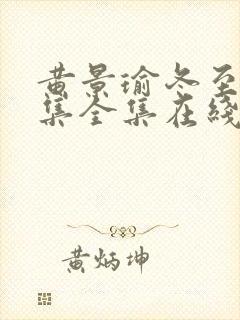 黄景瑜冬至
集全集在线
黄炳坤